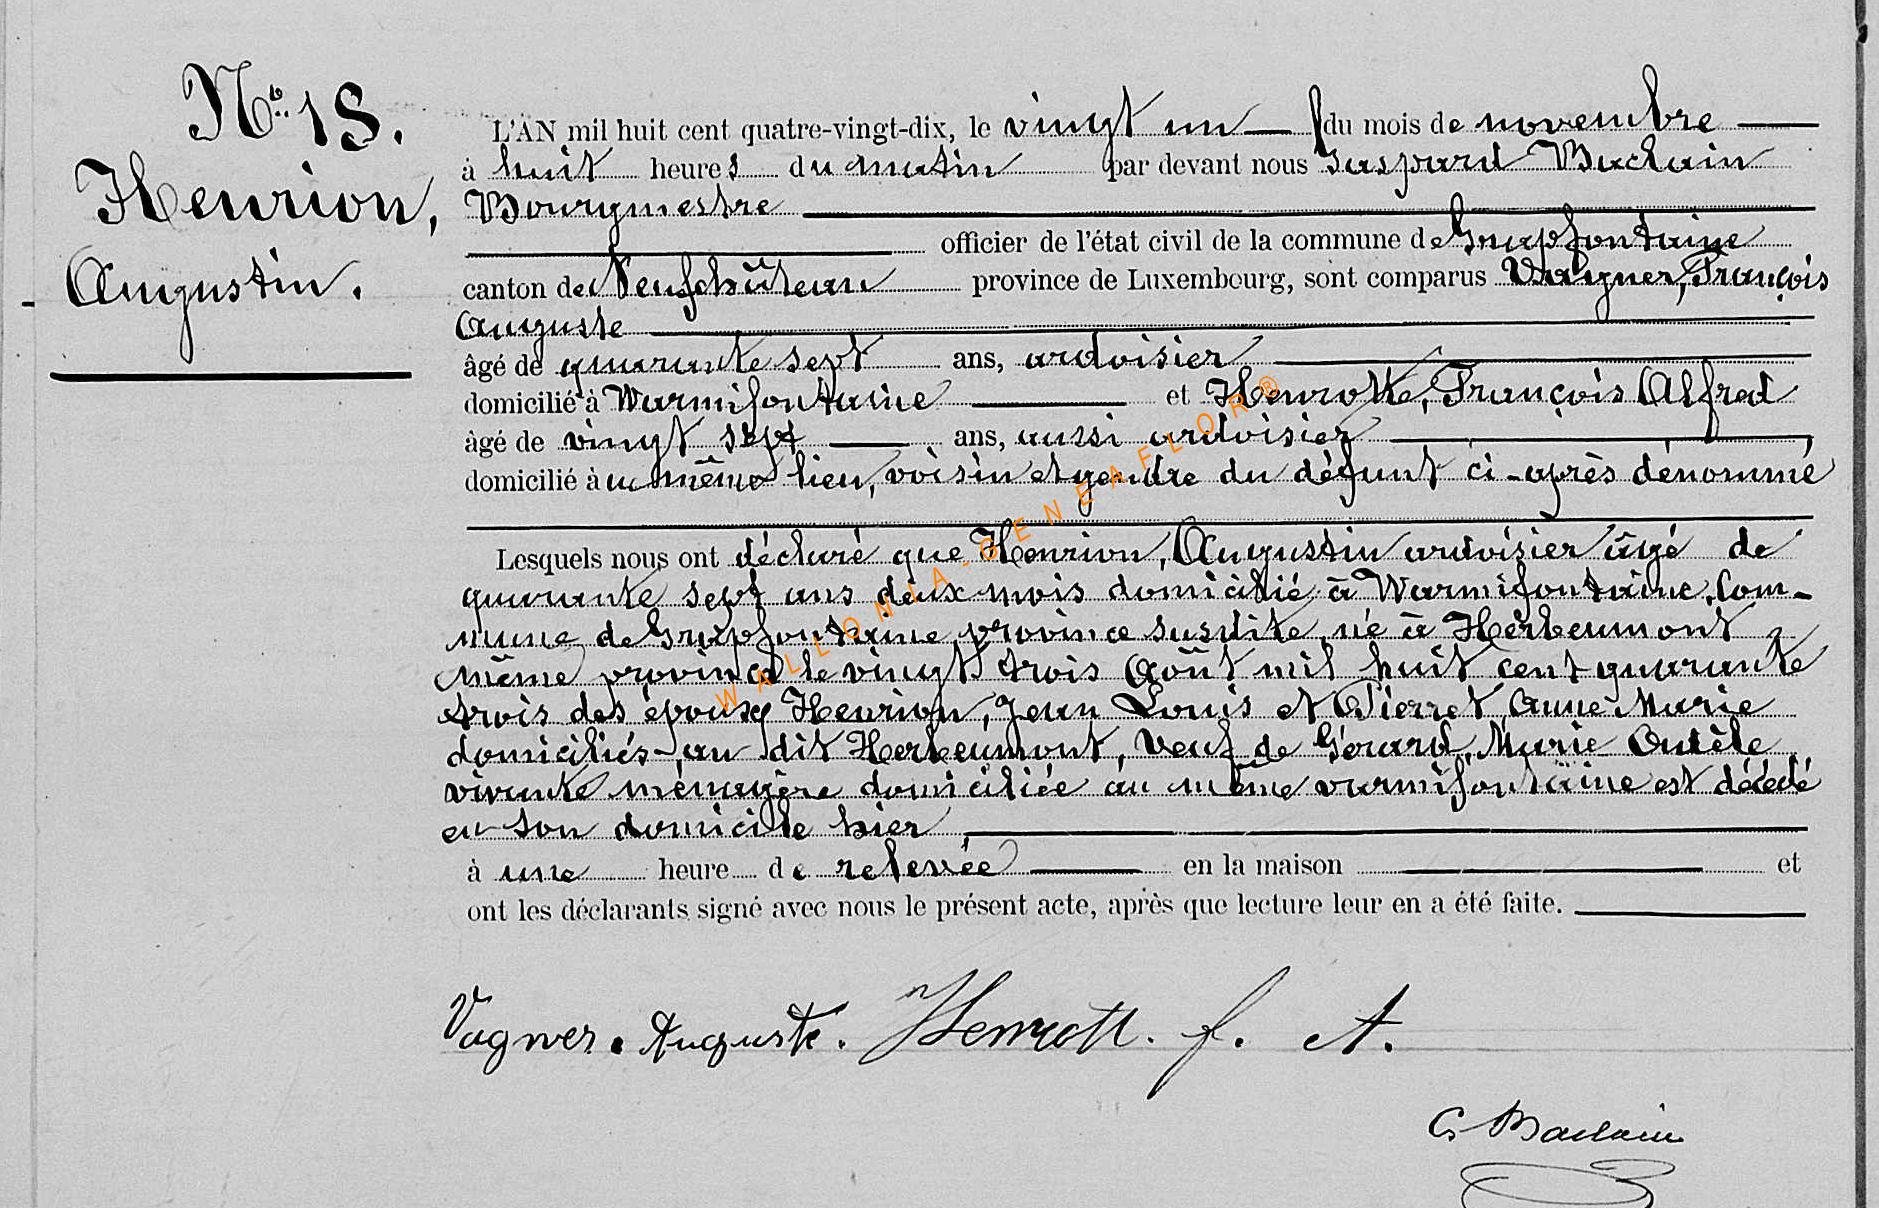 N.º 18.
Henrion,
Augustin.
L'AN mil huit cent quatre-vingt-dix, le vingt un du mois de novembre
à huit heures du matin par devant nous Gaspard Baclain
Bourgmestre
officier de l'état civil de la commune de Grapfontaine
canton de Neufchâteau province de Luxembourg, sont comparus Wagner, François
Auguste
âgé de quarante sept ans, ardoisier
domicilié à Warmifontaine et Henrotte, François Alfred
âgé de vingt sept ans, aussi ardoisier
domicilié à u même lieu, voisin et gendre du défunt ci-après dénommé
Lesquels nous ont déclaré que Henrion, Augustin ardoisier âgé de
quarante sept ans deux mois domicilié à Warmifontaine, Com-
mune de Grapfontaine province susdite, né à Herbeumont
même province le vingt trois Août mil huit cent quarante
trois des époux Henrion, Jean Louis et Pierret, Anne Marie
domiciliés au dit Herbeumont, veuf de Gérard, Marie
vivante ménagère domiciliée au même varmifontaine est décédé
en son domicile hier
à une heure de relevée en la maison et
ont les déclarants signé avec nous le présent acte, après que lecture leur en a été faite.
WALLONIA-GENEAFLOR®
Vagner. Auguste. Henrott. f. A.
G. Baclain